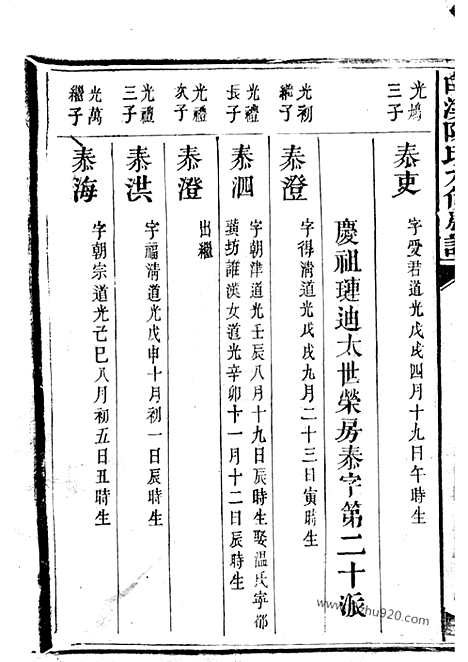 光鳩三子
泰吏
字愛君道光戊戌四月十九日午時生
慶祖璉迪太世榮房泰字第二十派
光初繼子
泰澄
字得淸道光戊戌九月二十三日寅時生
光禮長子
泰泗
字朝津道光壬辰八月十九日辰時生娶温氏寧都
璜坊誰漢女道光辛卯十一月十二日辰時生
光禮次子
泰澄
出繼
光禮三子
泰洪
字福淸道光戊申十月初一日辰時生
光萬繼子
泰海
字朝宗道光乙巳八月初五日丑時生